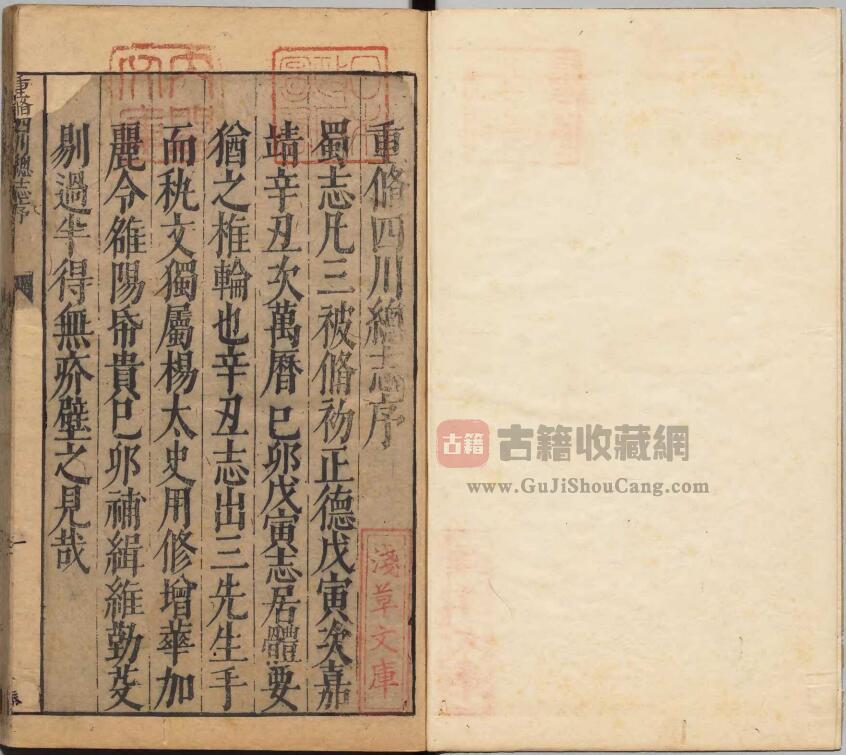 重脩四川總志序
蜀志凡三被脩初正德戊寅次嘉
靖辛丑次萬曆巳卯戊寅志居體要
猶之椎輪也辛丑志出三先生手
而秇文獨屬楊太史用修增華加
麗令雒陽帋貴巳卯補緝維勤芟
剔過半得無夼壁之見哉
重脩四川總志序
淺草文庫
古籍
古籍收藏網
www.GuJiShouCang.com